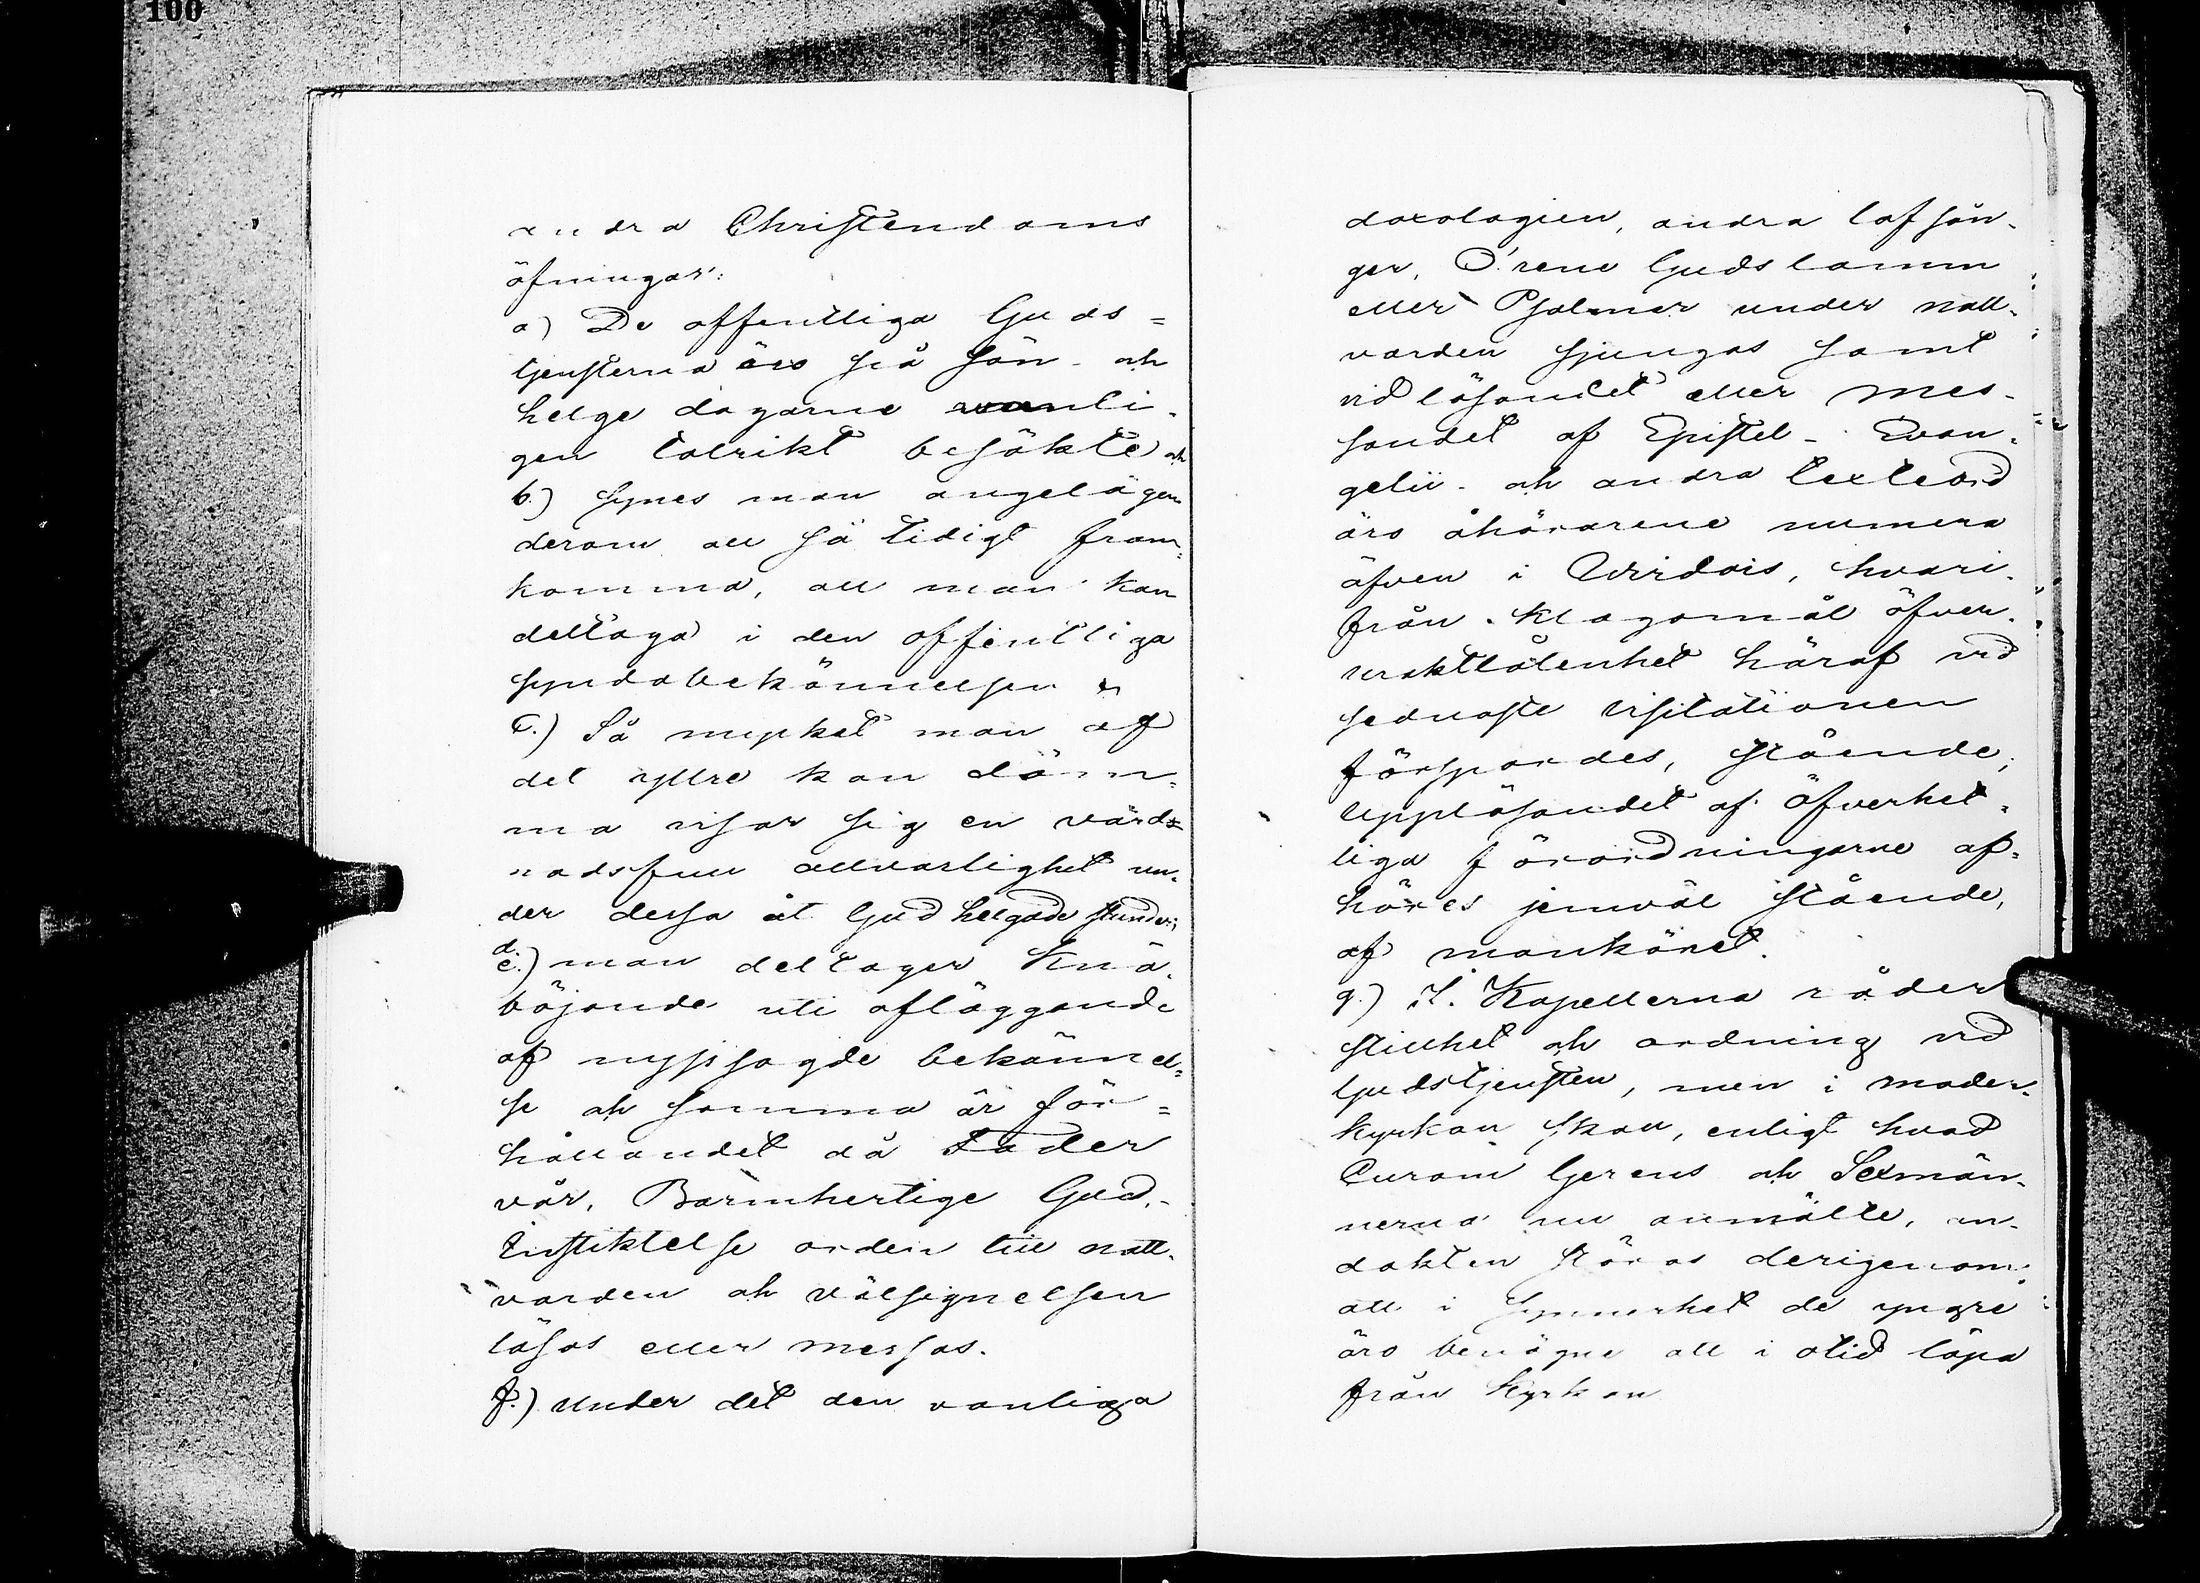 100
andra Christendoms
öfningar:
a) De offentliga Guds=
tjensterna äro på Sön- och
helgedagarne vanli-
gen talrikt besökte och
b.) Synes man angelägen
derom att så tidigt fram=
komma, att man kan
deltaga i den offentliga
syndabekännelsen &
c.) Så mycket man af
det yttre kan döm=
ma visar sig en värd
nadsfull allvarlighet un-
der dessa åt Gud helgade stunder;
d.) man deltager knä-
böjande uti afläggande
af nyssagde bekännel=
se och samma är för=
hållandet då Fader
vår, Barmhertige Gud,
Instiktelse orden till natt-
varden och välsignelsen
läsas eller messas.
f.) Under det den vanliga
doxologien, andra lofsån-
ger, O! rene Guds lamm
eller Psalmer under natt-
varden sjungas samt
vid läsandet eller mes-
sandet af Epistel- Evan-
gelii- och andra texteord
äro åhörarene numera
äfven i Wirdois, hvari-
från klagomål öfver
uraktlåtenhet häraf vid
sednaste visitationen
förspordes, stående;
Uppläsandet af öfverhet-
liga förordningarne af-
höres jemväl stående,
af mankönet.
g.) I. Kapellerna råder
stillhet och ordning vid
Gudstjensten, men i moder-
kyrkan skall, enligt hvad
Curam Gerens och Sexmän-
nerna nu anmälte, an-
dakten störas derigenom,
att i synnerhet de yngre
äro benägne att i otid löpa
från Kyrkan